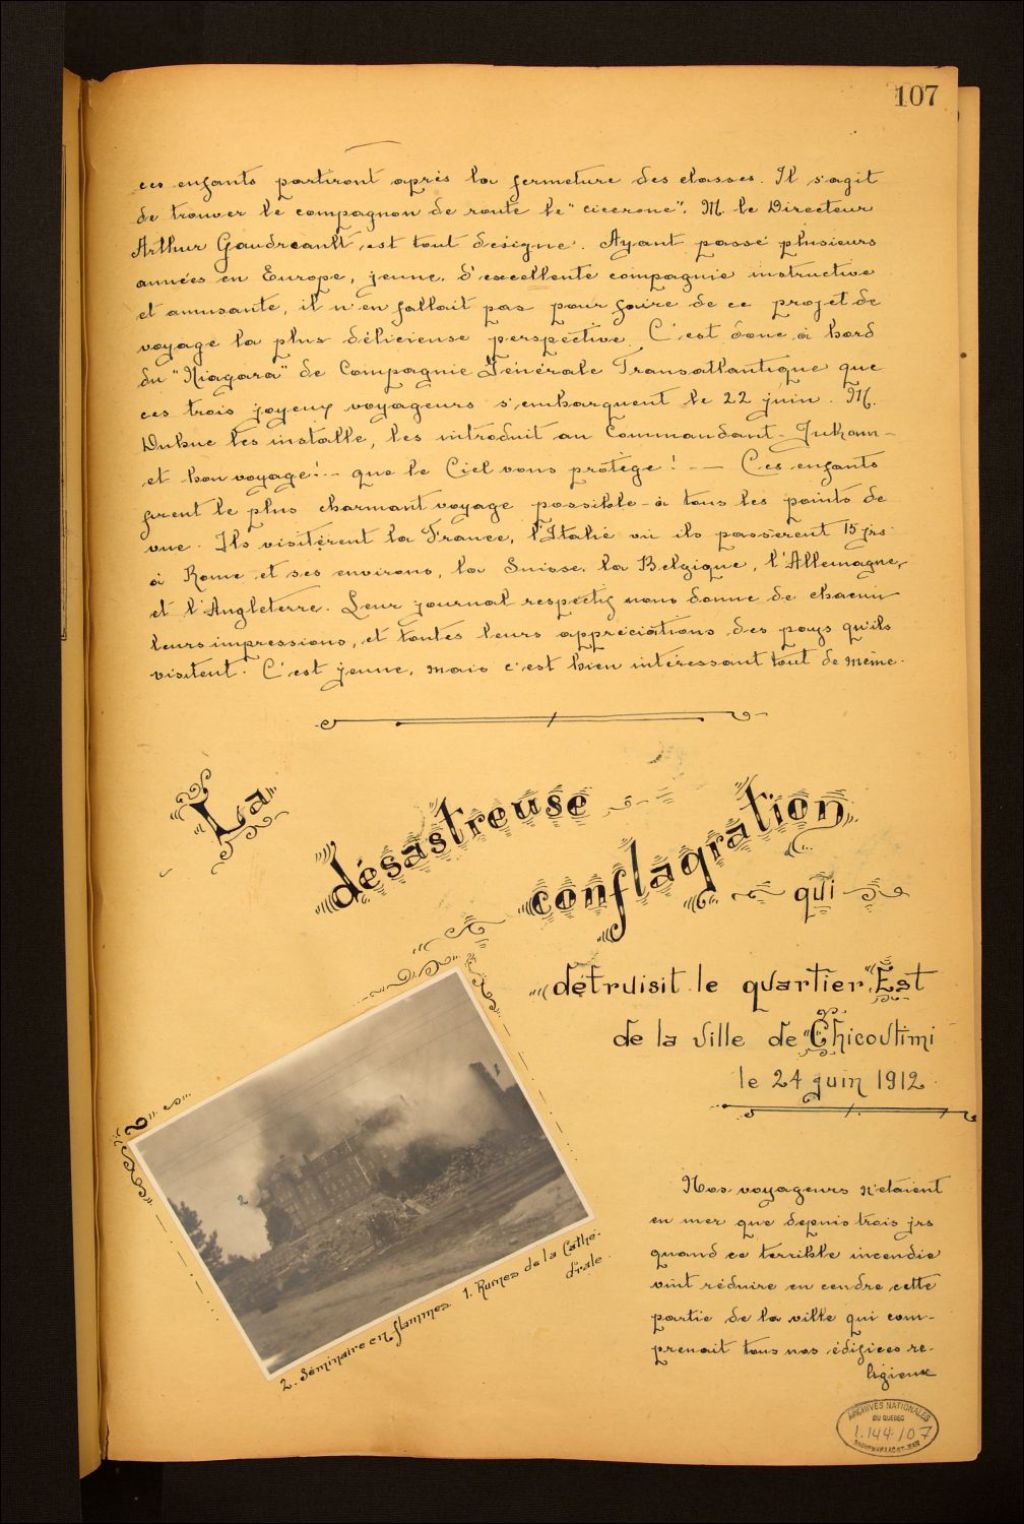 107
ces enfants partiront après la fermeture des classes. Il s'agit
de trouver le compagnon de route le "cicerone". M. le Directeur
Arthur Gaudreault, est tout désigné. Ayant passé plusieurs
années en Europe, jeune, d'excellente compagnie instructive
et amusante, il n'en fallait pas pour faire de ce projet de
voyage la plus délicieuse perspective. C'est donc à bord
du "Niagara" de Compagnie Générale Transatlantique que
ces trois joyeux voyageurs s'embarquent le 22 juin. M.
Dubuc les installe, les introduit au Commandant-Juham-
et bon voyage!-- que le Ciel vous protège! -- Ces enfants
firent le plus charmant voyage possible-à tous les points de
vue. Ils visitèrent la France, l'Italie où ils passèrent 15 jrs
à Rome et ses environs, la Suisse, la Belgique, l'Allemagne,
et l'Angleterre. Leur journal respectif nous donne de chacun
leurs impressions, et toutes leurs appréciations des pays qu'ils
visitent. C'est jeune, mais c'est bien intéressant tout de même.
La
désastreuse
conflagration
qui
détruisit le quartier Est
de la ville de Chicoutimi
le 24 juin 1912.
2
2. Séminaire en flammes. 1. Ruines de la Cathé-
drale.
Nos voyageurs n'étaient
en mer que depuis trois jrs
quand ce terrible incendie
vint réduire en cendre cette
partie de la ville qui com-
prenait tous nos édifices re-
ligieux
ARCHIVES NATIONALES
DU QUÉBEC
1.144.107